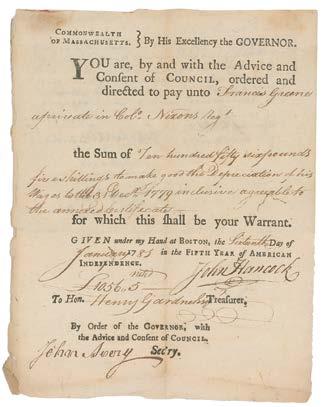 COMMONWEALTH
OF MASSACHUSETTS.
By His Excellency the GOVERNOR.
YOU are, by and with the Advice and
Consent of COUNCIL, ordered and
directed to pay unto Francis Greene
a private in Colo. Nixons Regt
the Sum of Ten hundred fifty six pounds
five shillings to make good the Depreciation of his
Wages to the 31 Decr. 1779 inclusive agreeable to
the annexed certificate
for which this shall be your Warrant.
GIVEN under my Hand at BOSTON, the Day of
January 1781 in the FIFTH YEAR OF AMERICAN
INDEPENDENCE.
John Hancock
£1056.5
To Hon. Henry Gardner, Treasurer,
By Order of the GOVERNOR, with
the Advice and Consent of COUNCIL,
John Avery Sec'ry.